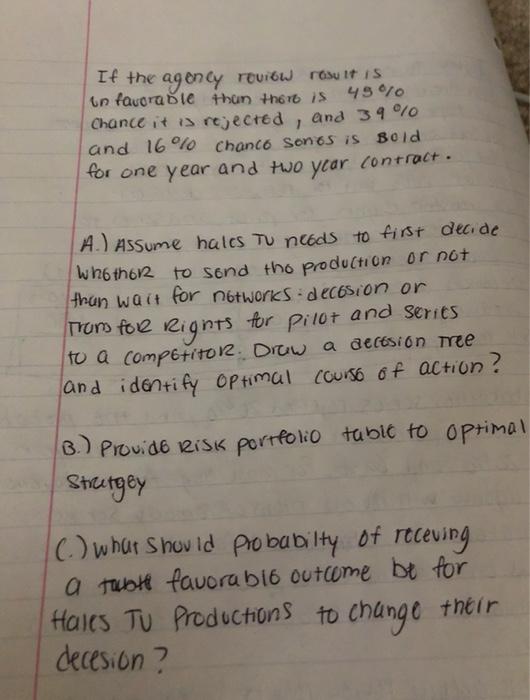 If the agency review result is
unfavorable than there is 45%
chance it is rejected, and 39%
and 16% chance series is Bold
for one year and two year contract.
A.) Assume hales TV needs to first decide
whether to send the production or not
than wait for networks decesion or
Transfer Rignts for pilot and series
to a competitor. Draw a decesion Tree
and identify optimal course of action?
B.) Provide RISK portfolio table to optimal
Stratgey
C.) what should probabilty of receving
a favorable outcome be for
Hales TV Productions to change their
decesion?